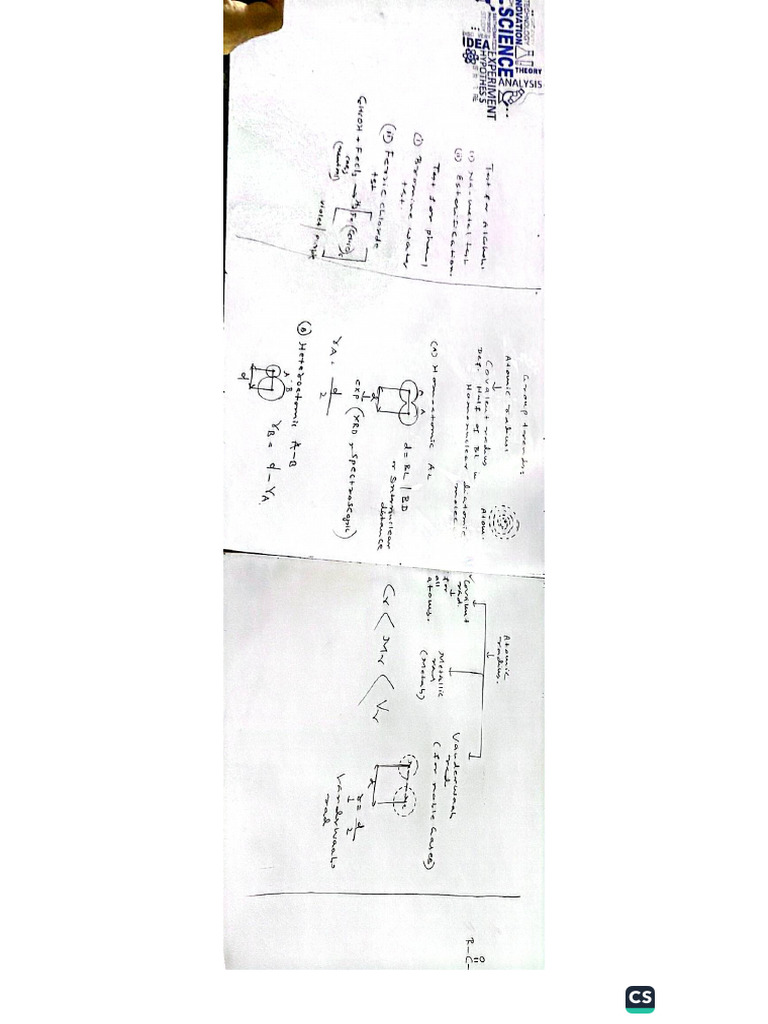 TECHNOLOGY
INNOVATION
SCIENCE
THEORY
ANALYSIS
IDEA
EXPERIMENT
HYPOTHESIS
Test for Alcohol:
(i) Na-metal test
(ii) Esterification.
Test for phenol
(i) Bromine water
test.
(ii) Ferric chloride
test
C6H5OH + FeCl3 →
(neutral)
violet
Group trends:
Atomic radius:
↓
Covalent radius
Def. Half of BL in
Homonuclear diatomic
molec.
Atom.
(A) Homoatomic A2
A A
d
d = BL / BD
or Internuclear
distance
↓
exp (XRD, spectroscopic)
rA = d/2
(B) Heteroatomic A-B
A B
d
rB = d - rA.
Atomic
radius.
↓
Covalent
rad.
↓
for
all
atoms.
Metallic
rad
(Metals)
Vanderwaals
rad
(for noble Gases)
Cr < Mr < Vr
d
r = d/2
↓
Vanderwaals
rad
R-C-
O
CS